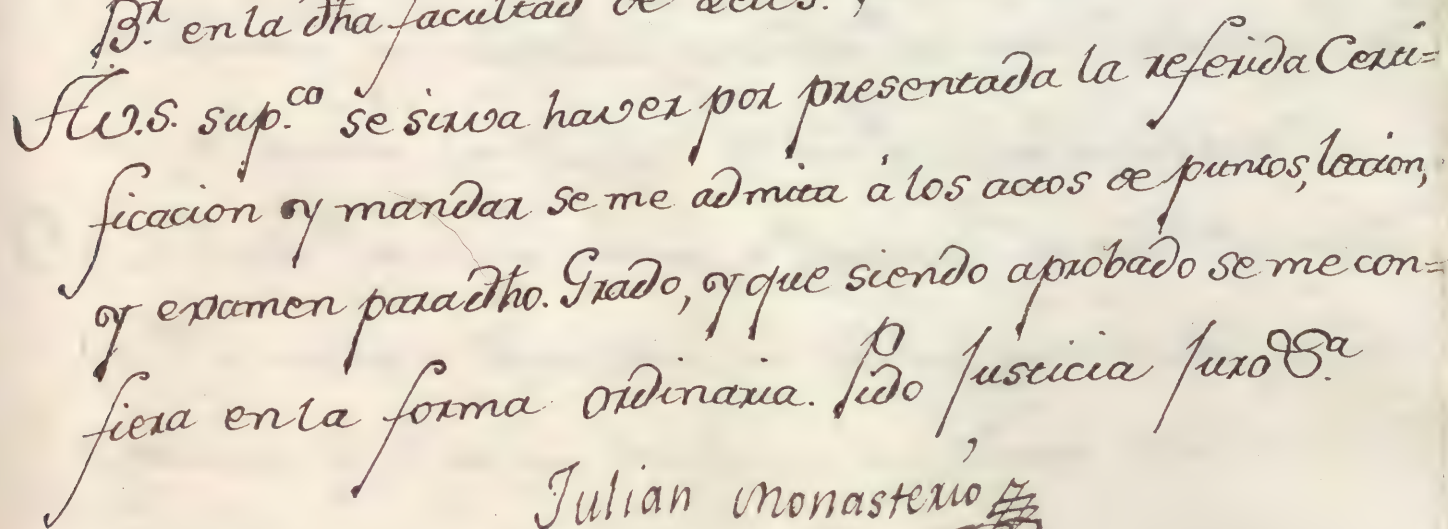 B.r en la dha facultad de
A V.S. sup.co se sirva haver por presentada la referida Certi=
ficacion y mandar se me admita á los actos de puntos, leccion,
y examen para dho. Grado, y que siendo aprobado se me con=
fiera en la forma ordinaria. Pido Justicia Juro &.a
Julian Monasterio